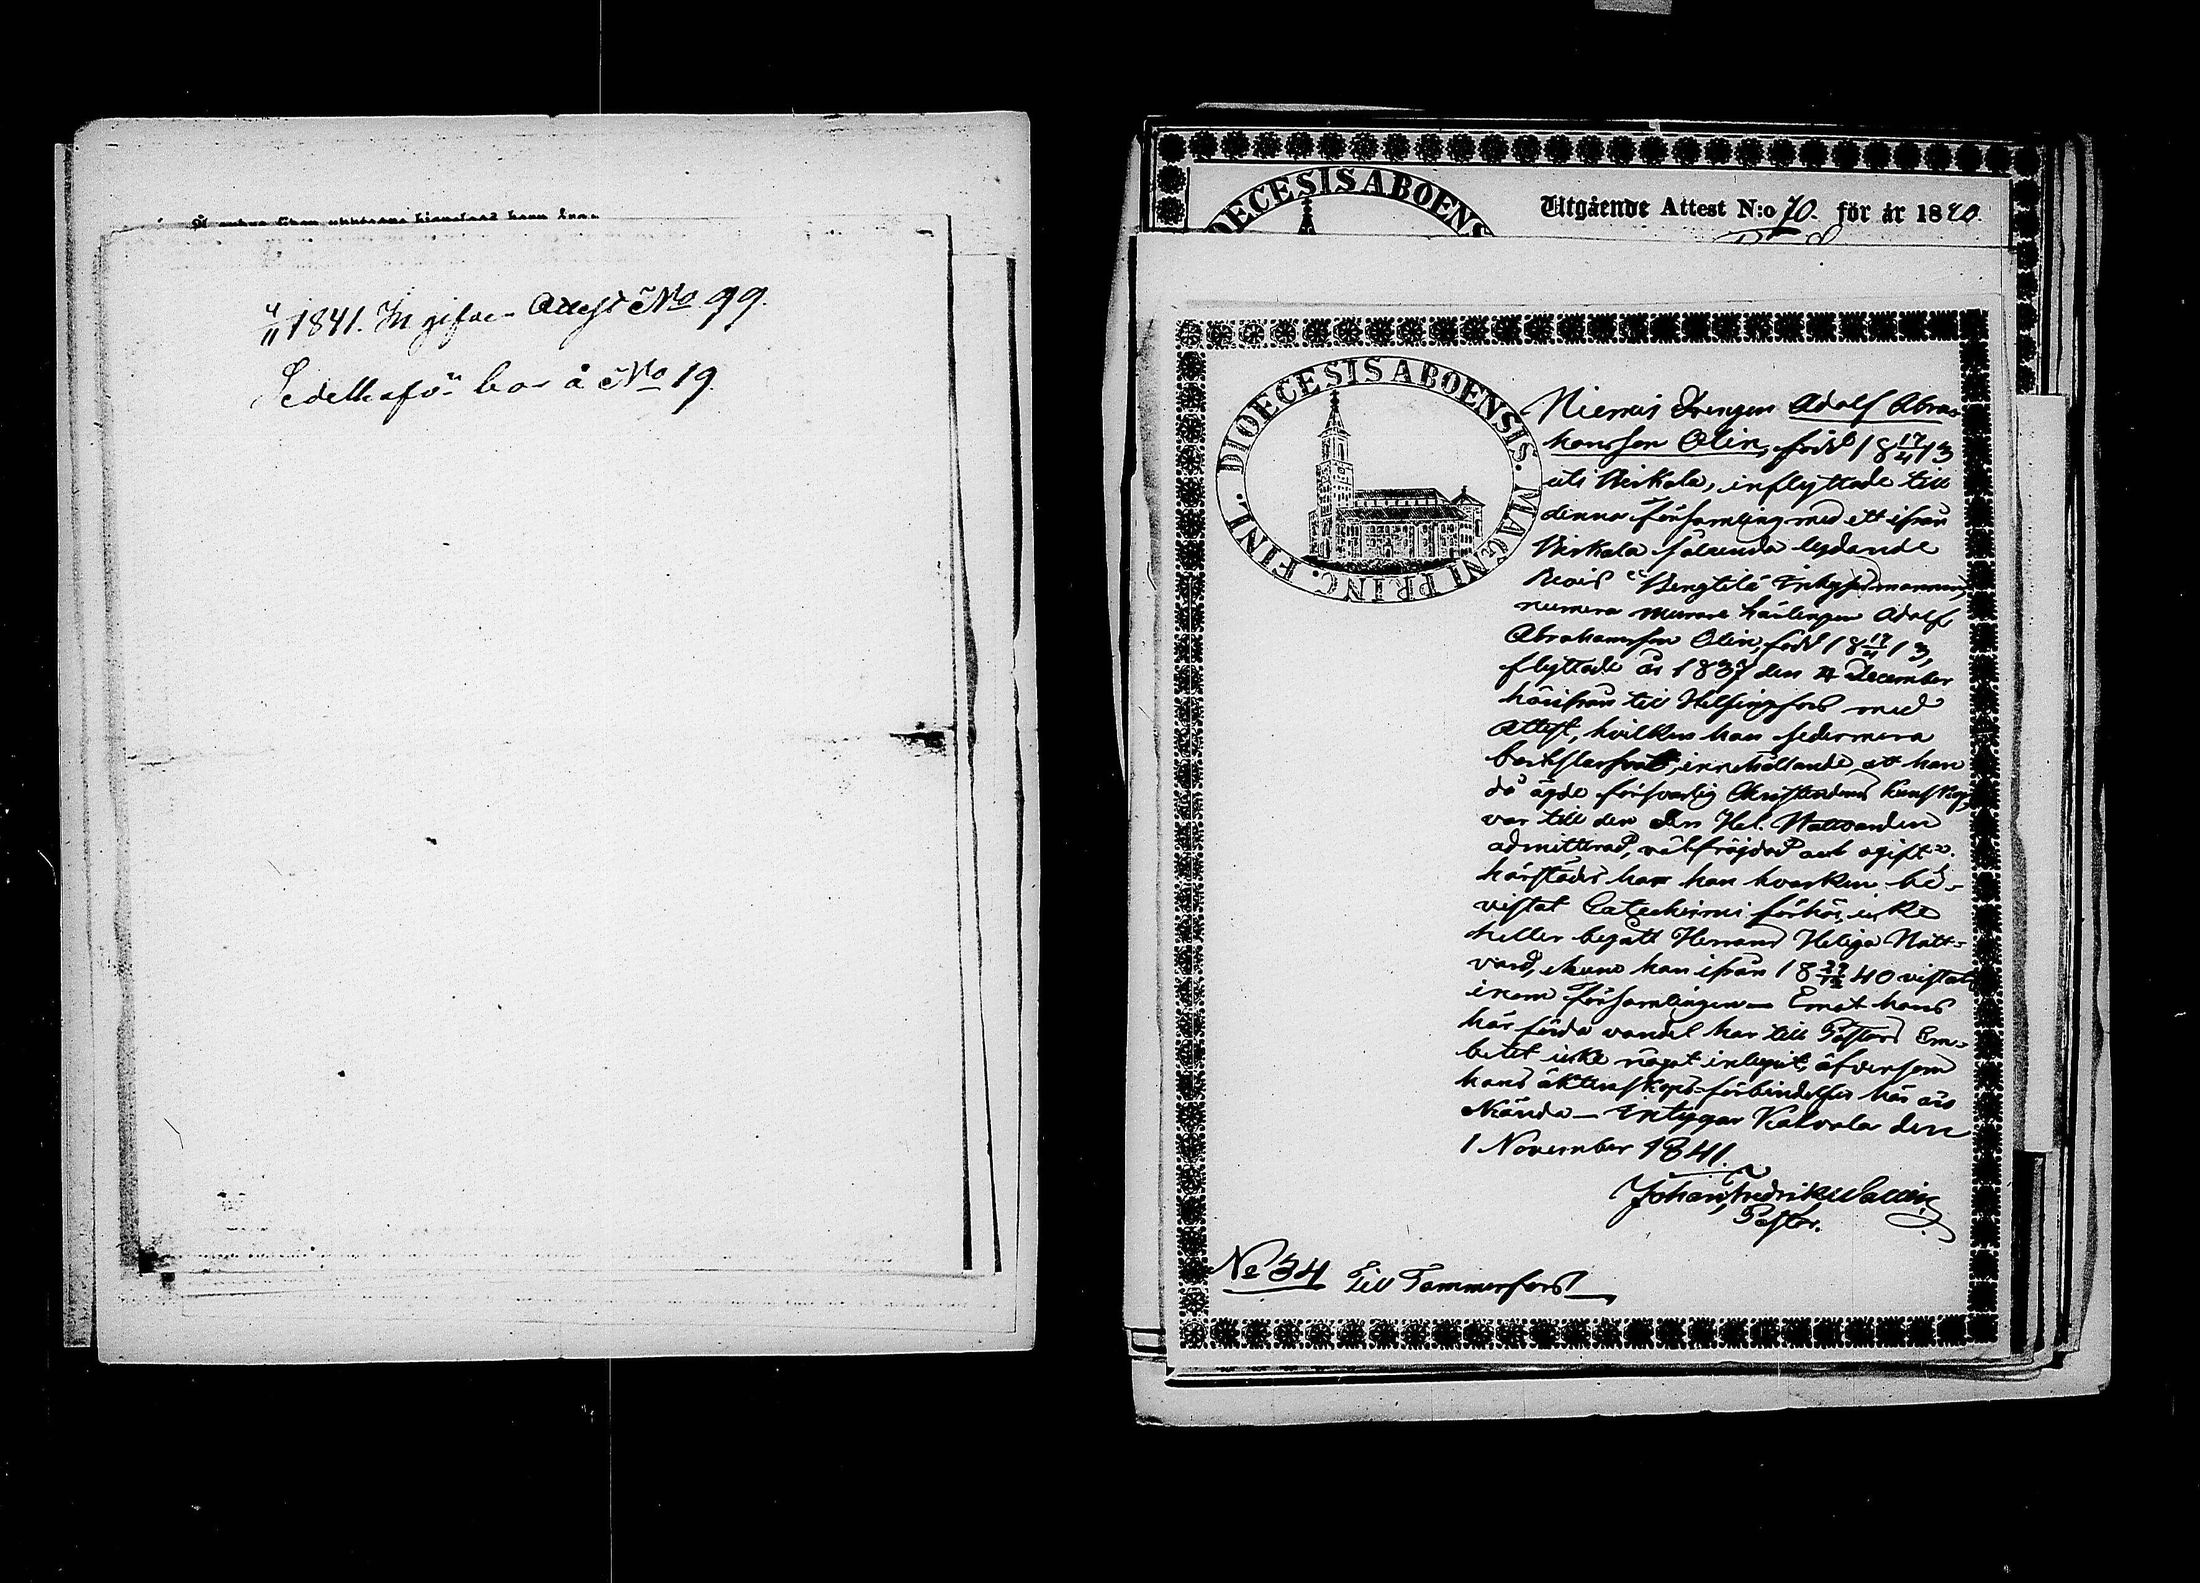 4/11 1841. Ingifven Attest No 99.
Sedelhafvn bor å No 19.
DIOECESIS ABOENS
Utgående Attest N:o 70. för år 1840.
DIOECESIS ABOENSIS. MAGNI PRINC. FINL.
Niemis Drengen Adolf Abra-
hamsson Olin, född 18 17/4 13
uti Birkala, inflyttade till
denna församling med ett ifrån
Birkala sålunda lydande
Bevis "Bengtilä
numera Murare Lärlingen Adolf
Abrahamsson Olin, född 18 17/4 13,
flyttade år 1837 den 4 December
härifrån till Helsingfors med
attest, hvilken han sedermera
bortslarfvat, innehållande att han
då ägde försvarlig Christendoms kunskap,
var till den Hel. Nattvarden
admitterad, välfrägdad och ogift".
härstädes har han hvarken be-
vistat Catechismi förhör, icke
heller begått Herrans Heliga Natt-
vard, ehuru han ifrån 18 40 vistats
inom församlingen — Emot hans
här förda vandel har till Pastors Em-
betet icke något inlupit, äfvensom
hans äktenskaps-förbindelser här äro
okända — Intygar Kalvola den
1 November 1841.
Johan Fredrik Wallin
Pastor.
No 34 Till Tammerfors